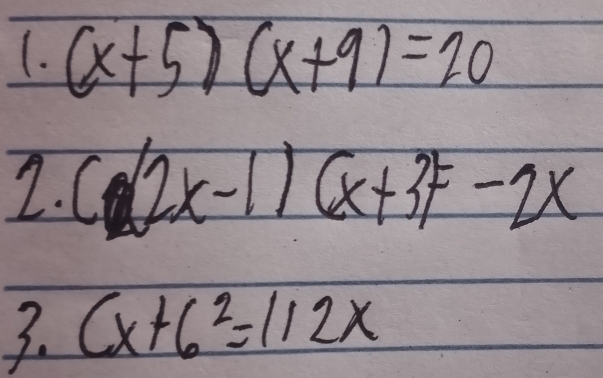 1. (x+5) (x+9)=20
2. (2x-1) (x+3)= -2x
3. (x+6²=112x